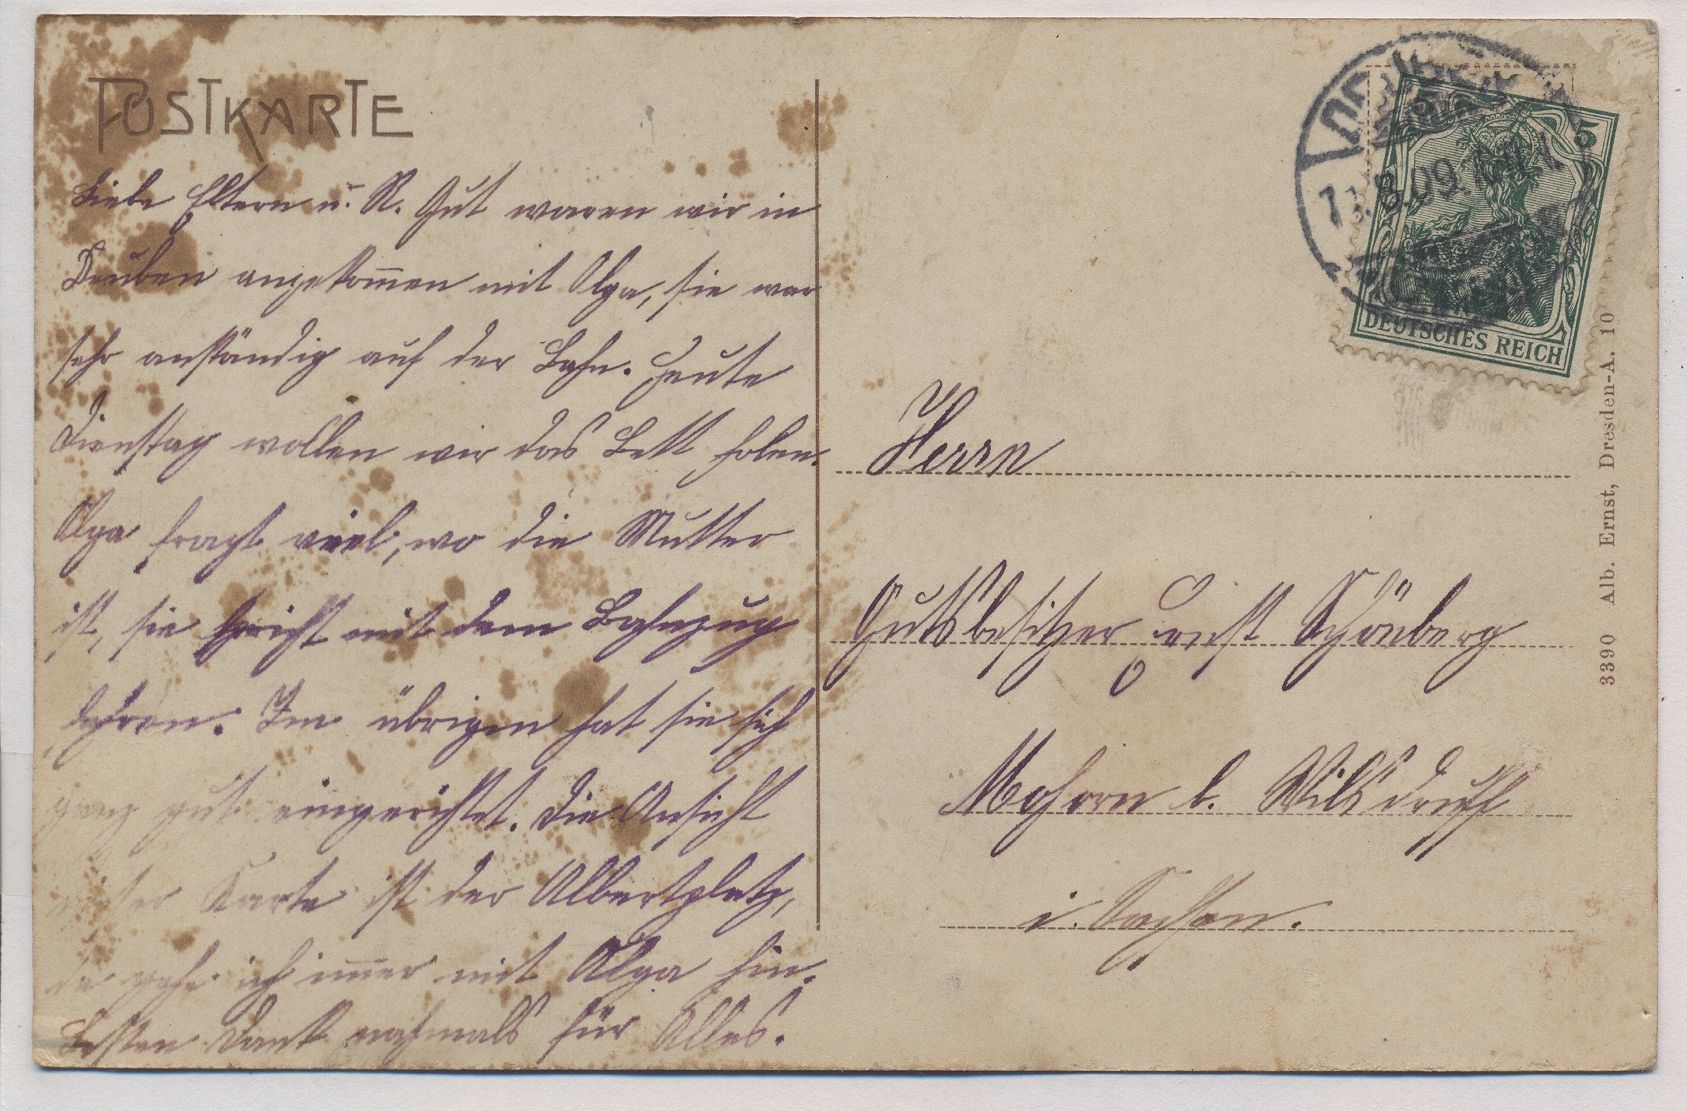 POSTKARTE
Liebe Eltern u. R. Gut waren wir in
Deuben angekom̅en mit Olga, sie war
sehr anständig auf der Bahn. Heute
Dienstag wollen wir das Bett holen.
Olga fragt viel, wo die Mutter
ist, sie spricht mit dem Bahnzug
fahren. Im übrigen hat sie sich
ganz gut eingerichtet. Die Ansicht
dieser Karte ist der Albertplatz,
da gehe ich im̅er mit Olga hin.
Besten Dank nochmals für Alles.
8.09.
5
DEUTSCHES REICH
Herrn
Gutsbesitzer Ernst Schönberg
Mohorn b. Wilsdruff
i. Sachsen.
3390 Alb. Ernst, Dresden-A. 10